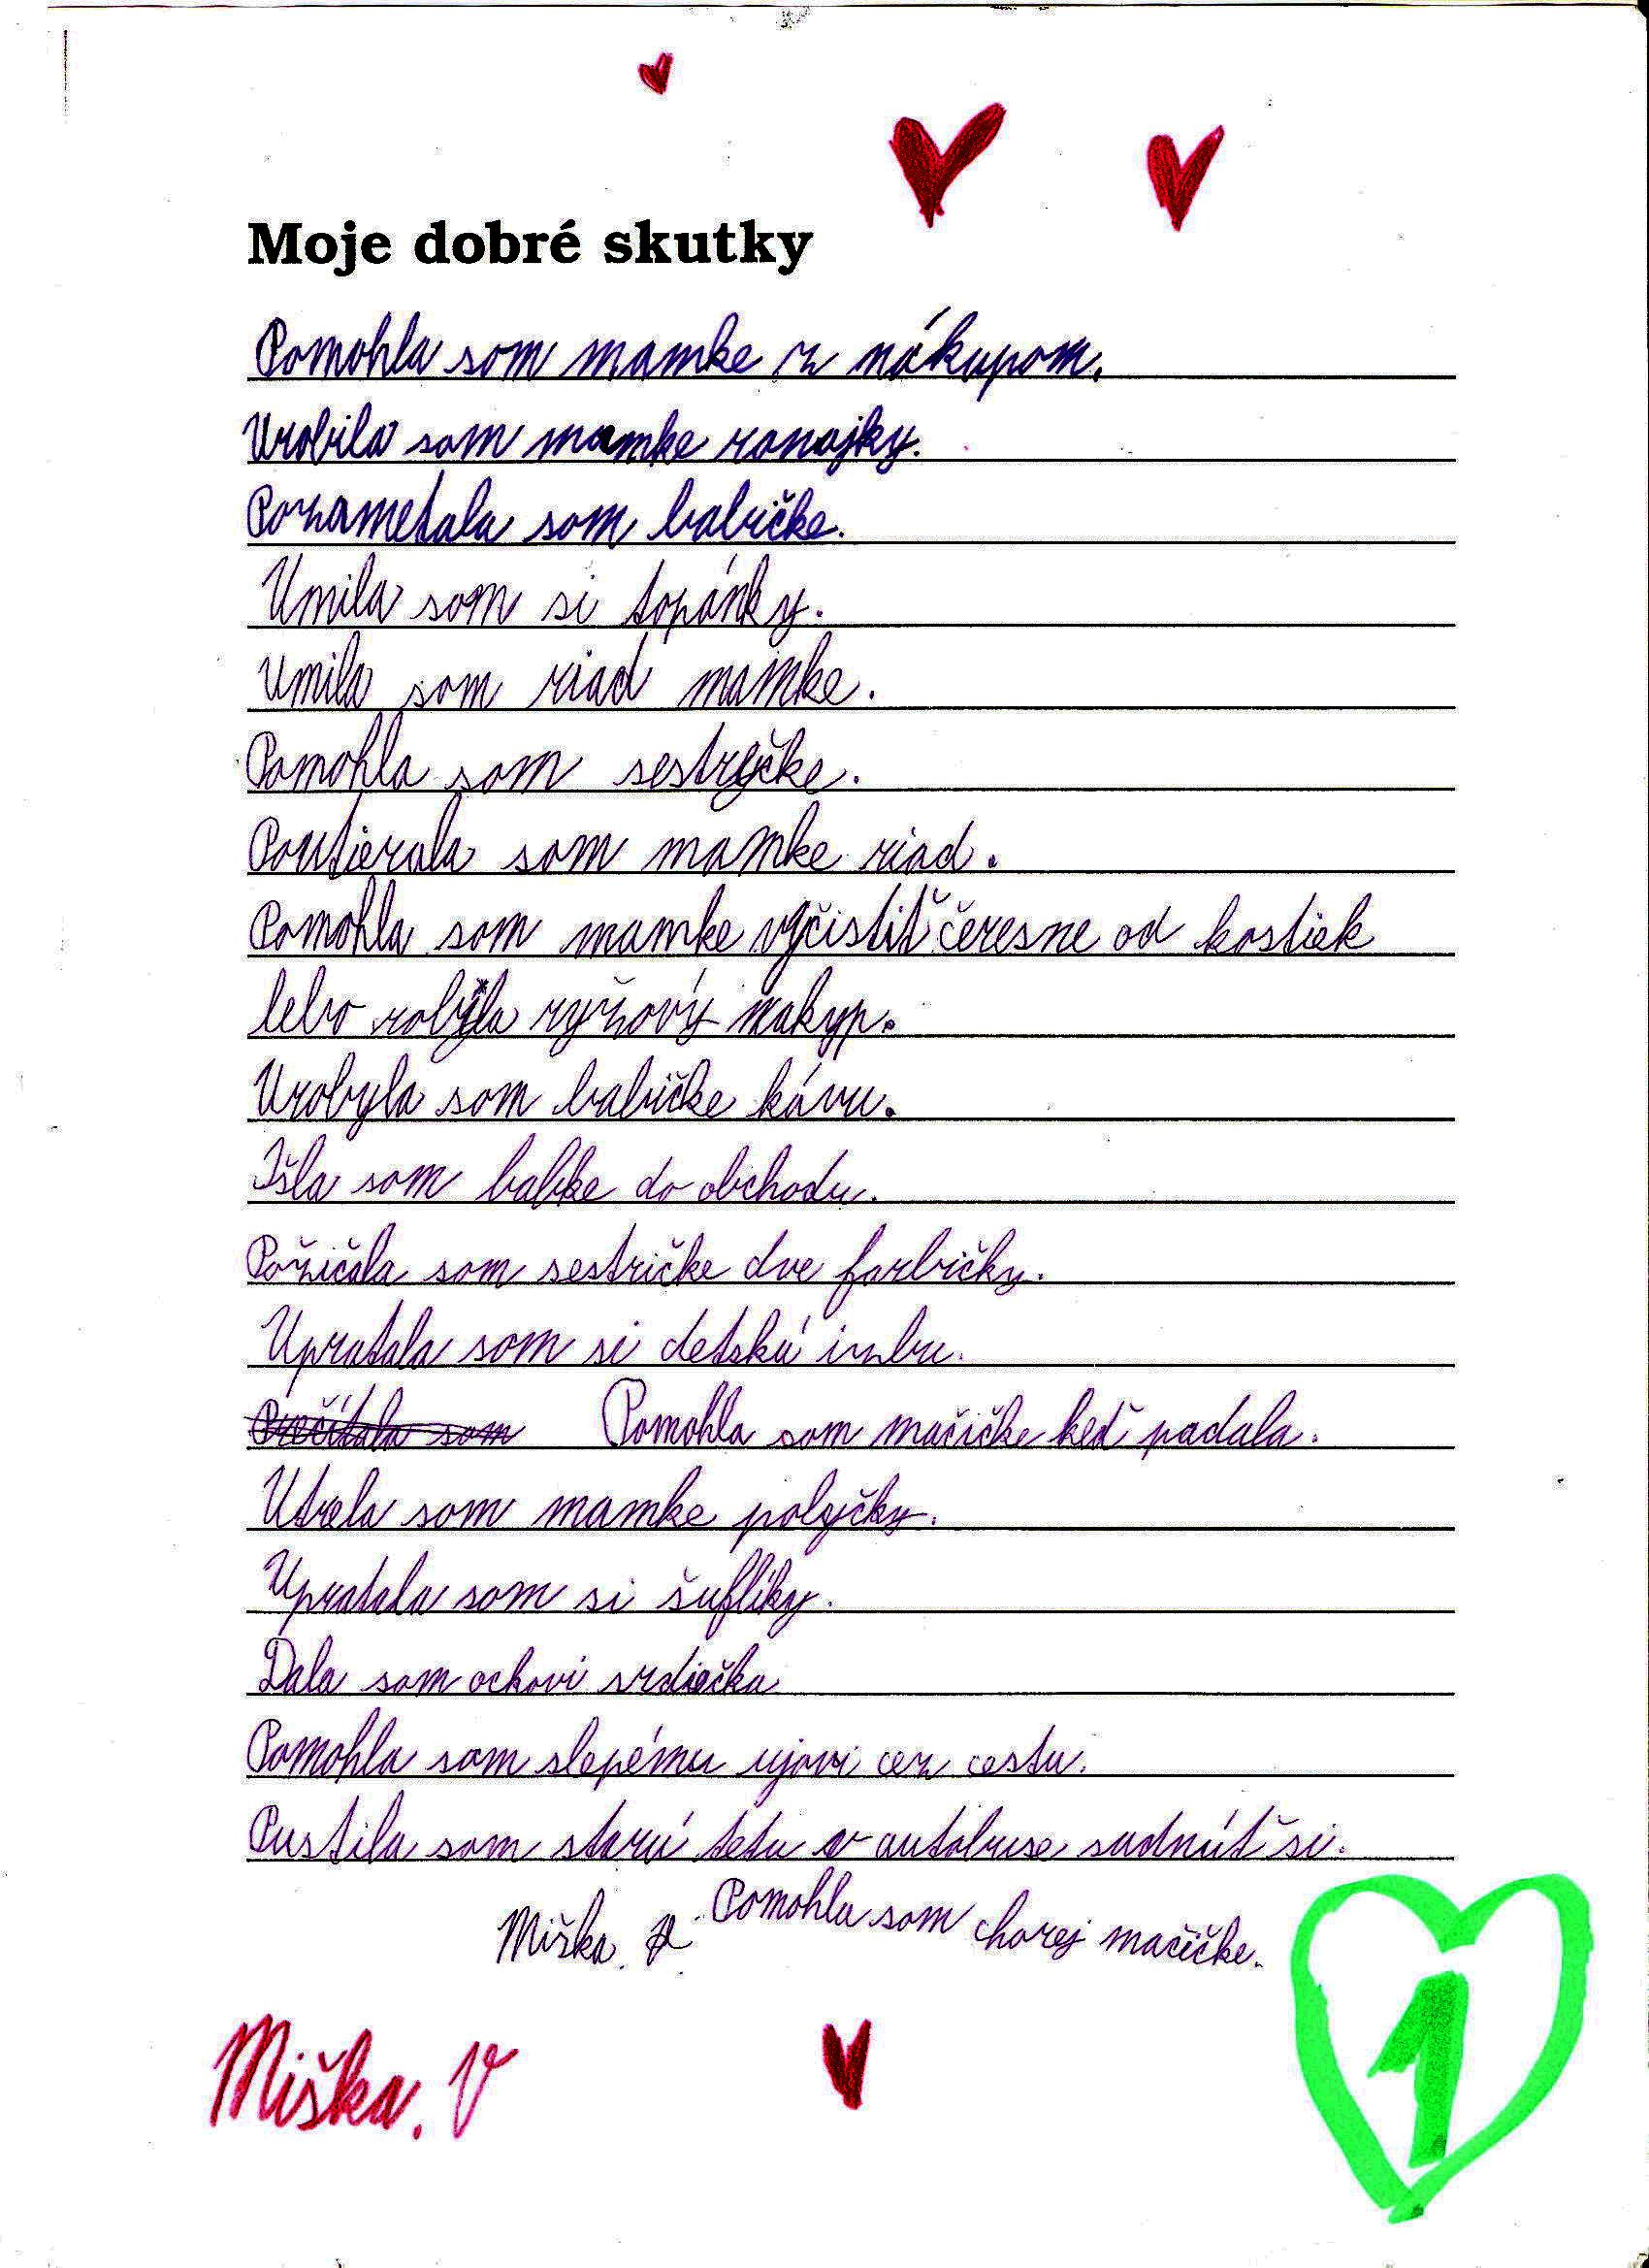 Moje dobré skutky
Pomohla som mamke z nákupom.
Urobila som mamke ranajky.
Pozametala som babičke.
Umila som si topánky.
Umila som riad mamke.
Pomohla som sestričke.
Poutierala som mamke riad.
Pomohla som mamke vyčistiť čeresne od kostiek
lebo robila ryžový nakyp.
Urobyla som babičke kávu.
Išla som babke do obchodu.
Požičala som sestričke dve farbičky.
Upratala som si detskú izbu.
Prečítala som Pomohla som mačičke keď padala.
Utrela som mamke polyčky.
Upratala som si šuflíky.
Dala som ockovi srdiečka
Pomohla som slepému ujovi cez cestu.
Pustila som starú tetu v autobuse sadnúť si.
Miška. Pomohla som chorej mačičke.
Miška. V
1